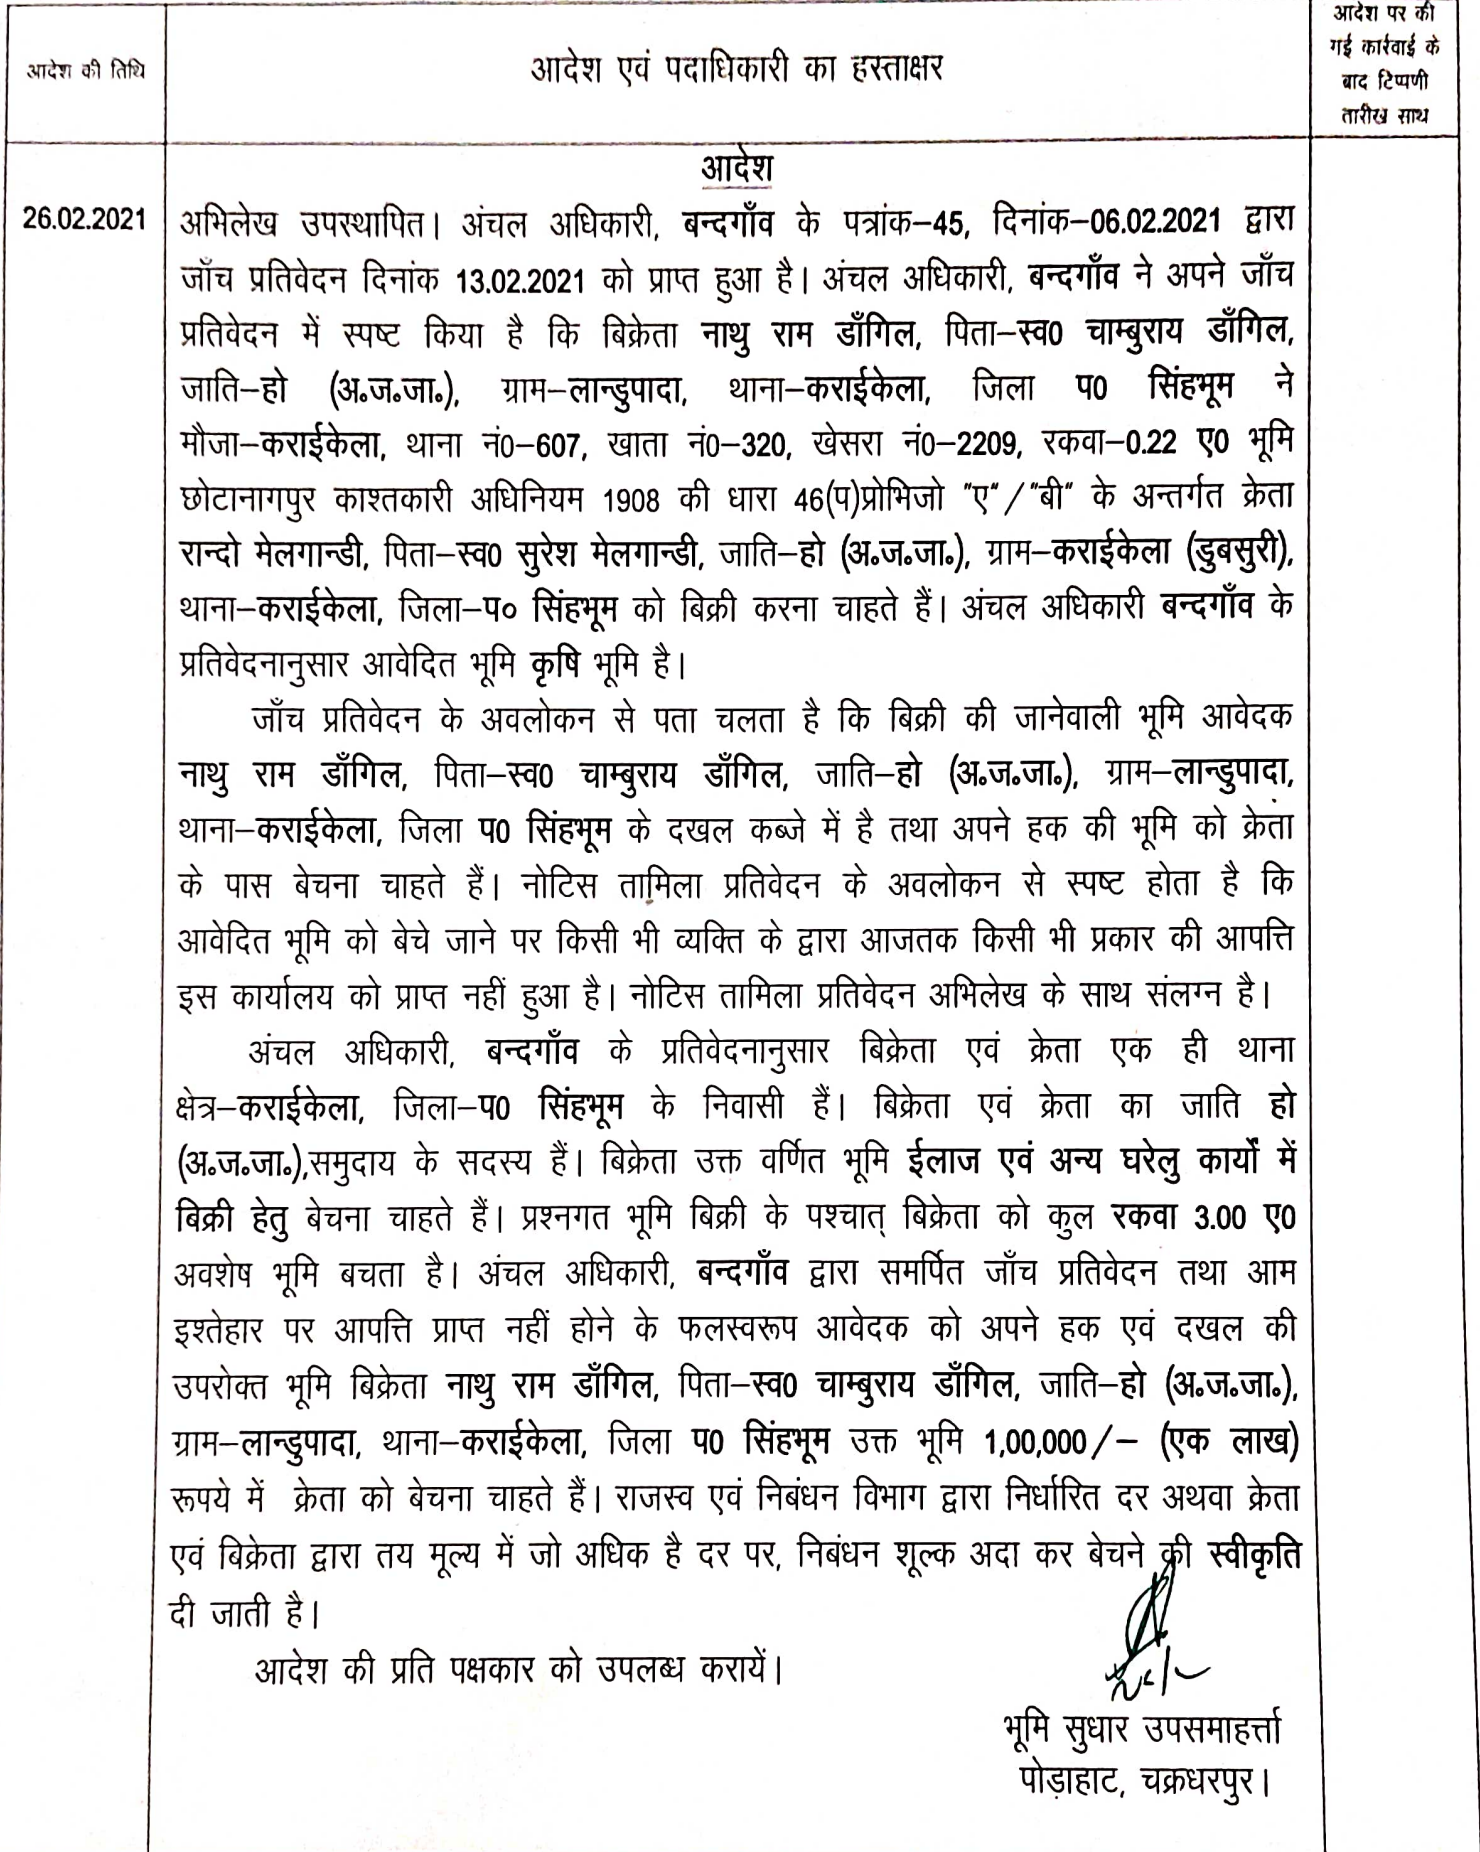 आदेश की तिथि
आदेश एवं पदाधिकारी का हस्ताक्षर
आदेश पर की
गई कार्रवाई के
बाद टिप्पणी
तारीख साथ
आदेश
26.02.2021
अभिलेख उपस्थापित। अंचल अधिकारी, बन्दगाँव के पत्रांक–45, दिनांक–06.02.2021 द्वारा
जाँच प्रतिवेदन दिनांक 13.02.2021 को प्राप्त हुआ है। अंचल अधिकारी, बन्दगाँव ने अपने जाँच
प्रतिवेदन में स्पष्ट किया है कि बिक्रेता नाथु राम डाँगिल, पिता–स्व0 चाम्बुराय डाँगिल,
जाति–हो (अ.ज.जा.), ग्राम–लान्डुपादा, थाना–कराईकेला, जिला प0 सिंहभूम ने
मौजा–कराईकेला, थाना नं0–607, खाता नं0–320, खेसरा नं0–2209, रकवा–0.22 ए0 भूमि
छोटानागपुर काश्तकारी अधिनियम 1908 की धारा 46(प)प्रोभिजो "ए"/"बी" के अन्तर्गत क्रेता
रान्दो मेलगान्डी, पिता–स्व0 सुरेश मेलगान्डी, जाति–हो (अ.ज.जा.), ग्राम–कराईकेला (डुबसुरी),
थाना–कराईकेला, जिला–प० सिंहभूम को बिक्री करना चाहते हैं। अंचल अधिकारी बन्दगाँव के
प्रतिवेदनानुसार आवेदित भूमि कृषि भूमि है।
जाँच प्रतिवेदन के अवलोकन से पता चलता है कि बिक्री की जानेवाली भूमि आवेदक
नाथु राम डाँगिल, पिता–स्व0 चाम्बुराय डाँगिल, जाति–हो (अ.ज.जा.), ग्राम–लान्डुपादा,
थाना–कराईकेला, जिला प0 सिंहभूम के दखल कब्जे में है तथा अपने हक की भूमि को क्रेता
के पास बेचना चाहते हैं। नोटिस तामिला प्रतिवेदन के अवलोकन से स्पष्ट होता है कि
आवेदित भूमि को बेचे जाने पर किसी भी व्यक्ति के द्वारा आजतक किसी भी प्रकार की आपत्ति
इस कार्यालय को प्राप्त नहीं हुआ है। नोटिस तामिला प्रतिवेदन अभिलेख के साथ संलग्न है।
अंचल अधिकारी, बन्दगाँव के प्रतिवेदनानुसार बिक्रेता एवं क्रेता एक ही थाना
क्षेत्र–कराईकेला, जिला–प0 सिंहभूम के निवासी हैं। बिक्रेता एवं क्रेता का जाति हो
(अ.ज.जा.),समुदाय के सदस्य हैं। बिक्रेता उक्त वर्णित भूमि ईलाज एवं अन्य घरेलु कार्यो में
बिक्री हेतु बेचना चाहते हैं। प्रश्नगत भूमि बिक्री के पश्चात् बिक्रेता को कुल रकवा 3.00 ए0
अवशेष भूमि बचता है। अंचल अधिकारी, बन्दगाँव द्वारा समर्पित जाँच प्रतिवेदन तथा आम
इश्तेहार पर आपत्ति प्राप्त नहीं होने के फलस्वरूप आवेदक को अपने हक एवं दखल की
उपरोक्त भूमि बिक्रेता नाथु राम डाँगिल, पिता–स्व0 चाम्बुराय डाँगिल, जाति–हो (अ.ज.जा.),
ग्राम–लान्डुपादा, थाना–कराईकेला, जिला प0 सिंहभूम उक्त भूमि 1,00,000/– (एक लाख)
रूपये में क्रेता को बेचना चाहते हैं। राजस्व एवं निबंधन विभाग द्वारा निर्धारित दर अथवा क्रेता
एवं बिक्रेता द्वारा तय मूल्य में जो अधिक है दर पर, निबंधन शूल्क अदा कर बेचने की स्वीकृति
दी जाती है।
आदेश की प्रति पक्षकार को उपलब्ध करायें।
भूमि सुधार उपसमाहर्त्ता
पोड़ाहाट, चक्रधरपुर।